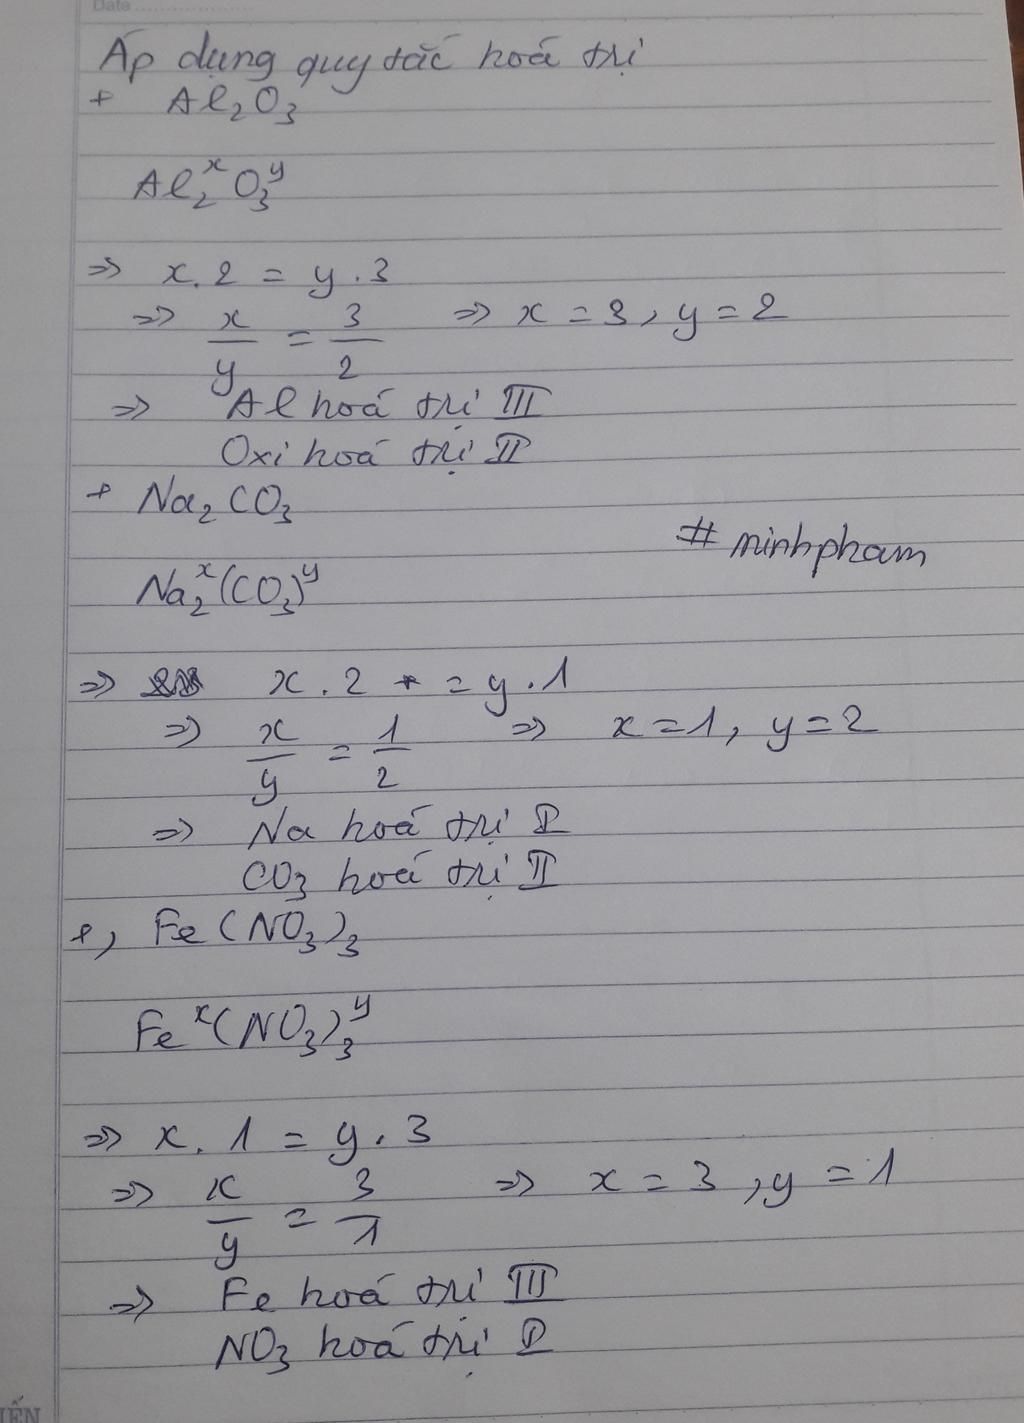 Date
Áp dụng quy tắc hoá trị
+ Al₂O₃
Al₂ˣO₃ʸ
=> x.2 = y.3
=> x/y = 3/2 => x = 3, y = 2
=> Al hoá trị III
Oxi hoá trị II
+ Na₂CO₃
#minhpham
Na₂ˣ(CO₃)ʸ
=> x.2 = y.1
=> x/y = 1/2 => x=1, y=2
=> Na hoá trị I
CO₃ hoá trị II
+, Fe(NO₃)₃
Feˣ(NO₃)₃ʸ
=> x.1 = y.3
=> x/y = 3/1 => x = 3, y = 1
=> Fe hoá trị III
NO₃ hoá trị I